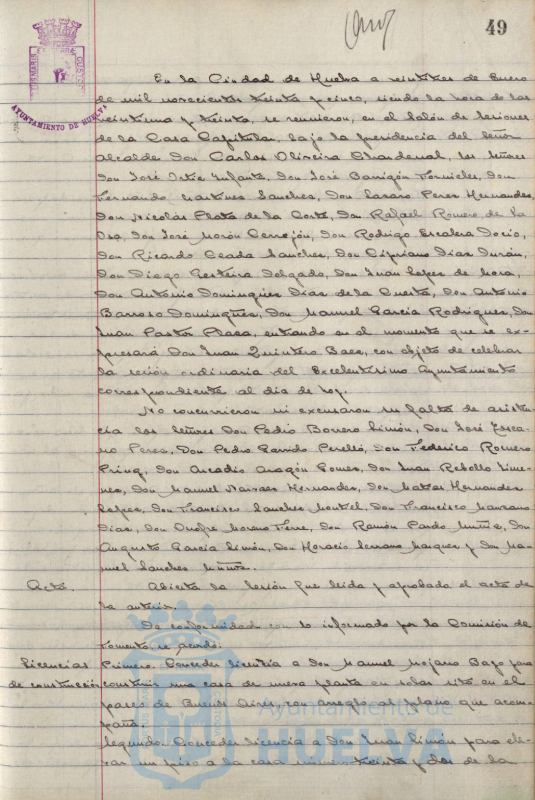 49
AYUNTAMIENTO DE HUELVA
En la Ciudad de Huelva a veintitres de Enero
de mil novecientos treinta y cinco, siendo la hora de las
veintiuna y treinta, se reunieron, en el Salón de Sesiones
de la Casa Capitular, bajo la presidencia del señor
Alcalde Don Carlos Oliveira Chardenal, los señores
Don José Ortiz Infante, Don José Barrigón Fornieles, Don
Fernando Martinez Sanchez, Don Lazaro Perez Hernandez,
Don Nicolás Plata de la Corte, Don Rafael Romero de la
Osa, Don José Morón Cerrejón, Don Rodrigo Escalera Docio,
Don Ricardo Ceada Sanchez, Don Cipriano Dias Durán,
Don Diego Delgado, Don Juan Lopez de Mora,
Don Antonio Dominguez Dias de la Cuesta, Don Antonio
Barroso Dominguez, Don Manuel Garcia Rodriguez, Don
Juan Pastor Plaza, entrando en el momento que se ex-
presará Don Juan Quintero Baez, con objeto de celebrar
la sesión ordinaria del Excelentísimo Ayuntamiento
correspondiente al dia de hoy.
No concurrieron ni excusaron su falta de asisten-
cia los señores Don Pedro Borrero Limón, Don José Tosca-
no Perez, Don Pedro Garrido Perelló, Don Federico Romero
Don Arcadio Aragón Gomez, Don Juan Rebollo Jime-
nez, Don Manuel Narvaez Hernandez, Don Matias Hernandez
Lopez, Don Francisco Sanchez Montiel, Don Francisco Manzano
Dias, Don Onofre Moreno Don Ramón Pardo Muñiz, Don
Augusto Garcia Limón, Don Horacio Serrano Marquez y Don Ma-
nuel Sanchez Muñoz.
Acta. Abierta la sesión fue leida y aprobada el acta de
la anterior.
De conformidad con lo informado por la Comisión de
Fomento, se acordó:
Licencias Primero. Conceder licencia a Don Manuel Mojarro Bayo para
de construcción construir una casa de nueva planta en solar sito en el
paseo de Buenos Aires, con arreglo al plano que acom-
paña.
Segundo. Conceder licencia a Don Juan Limón para ele-
var un piso a la casa número treinta y dos de la
Ayuntamiento de
HUELVA